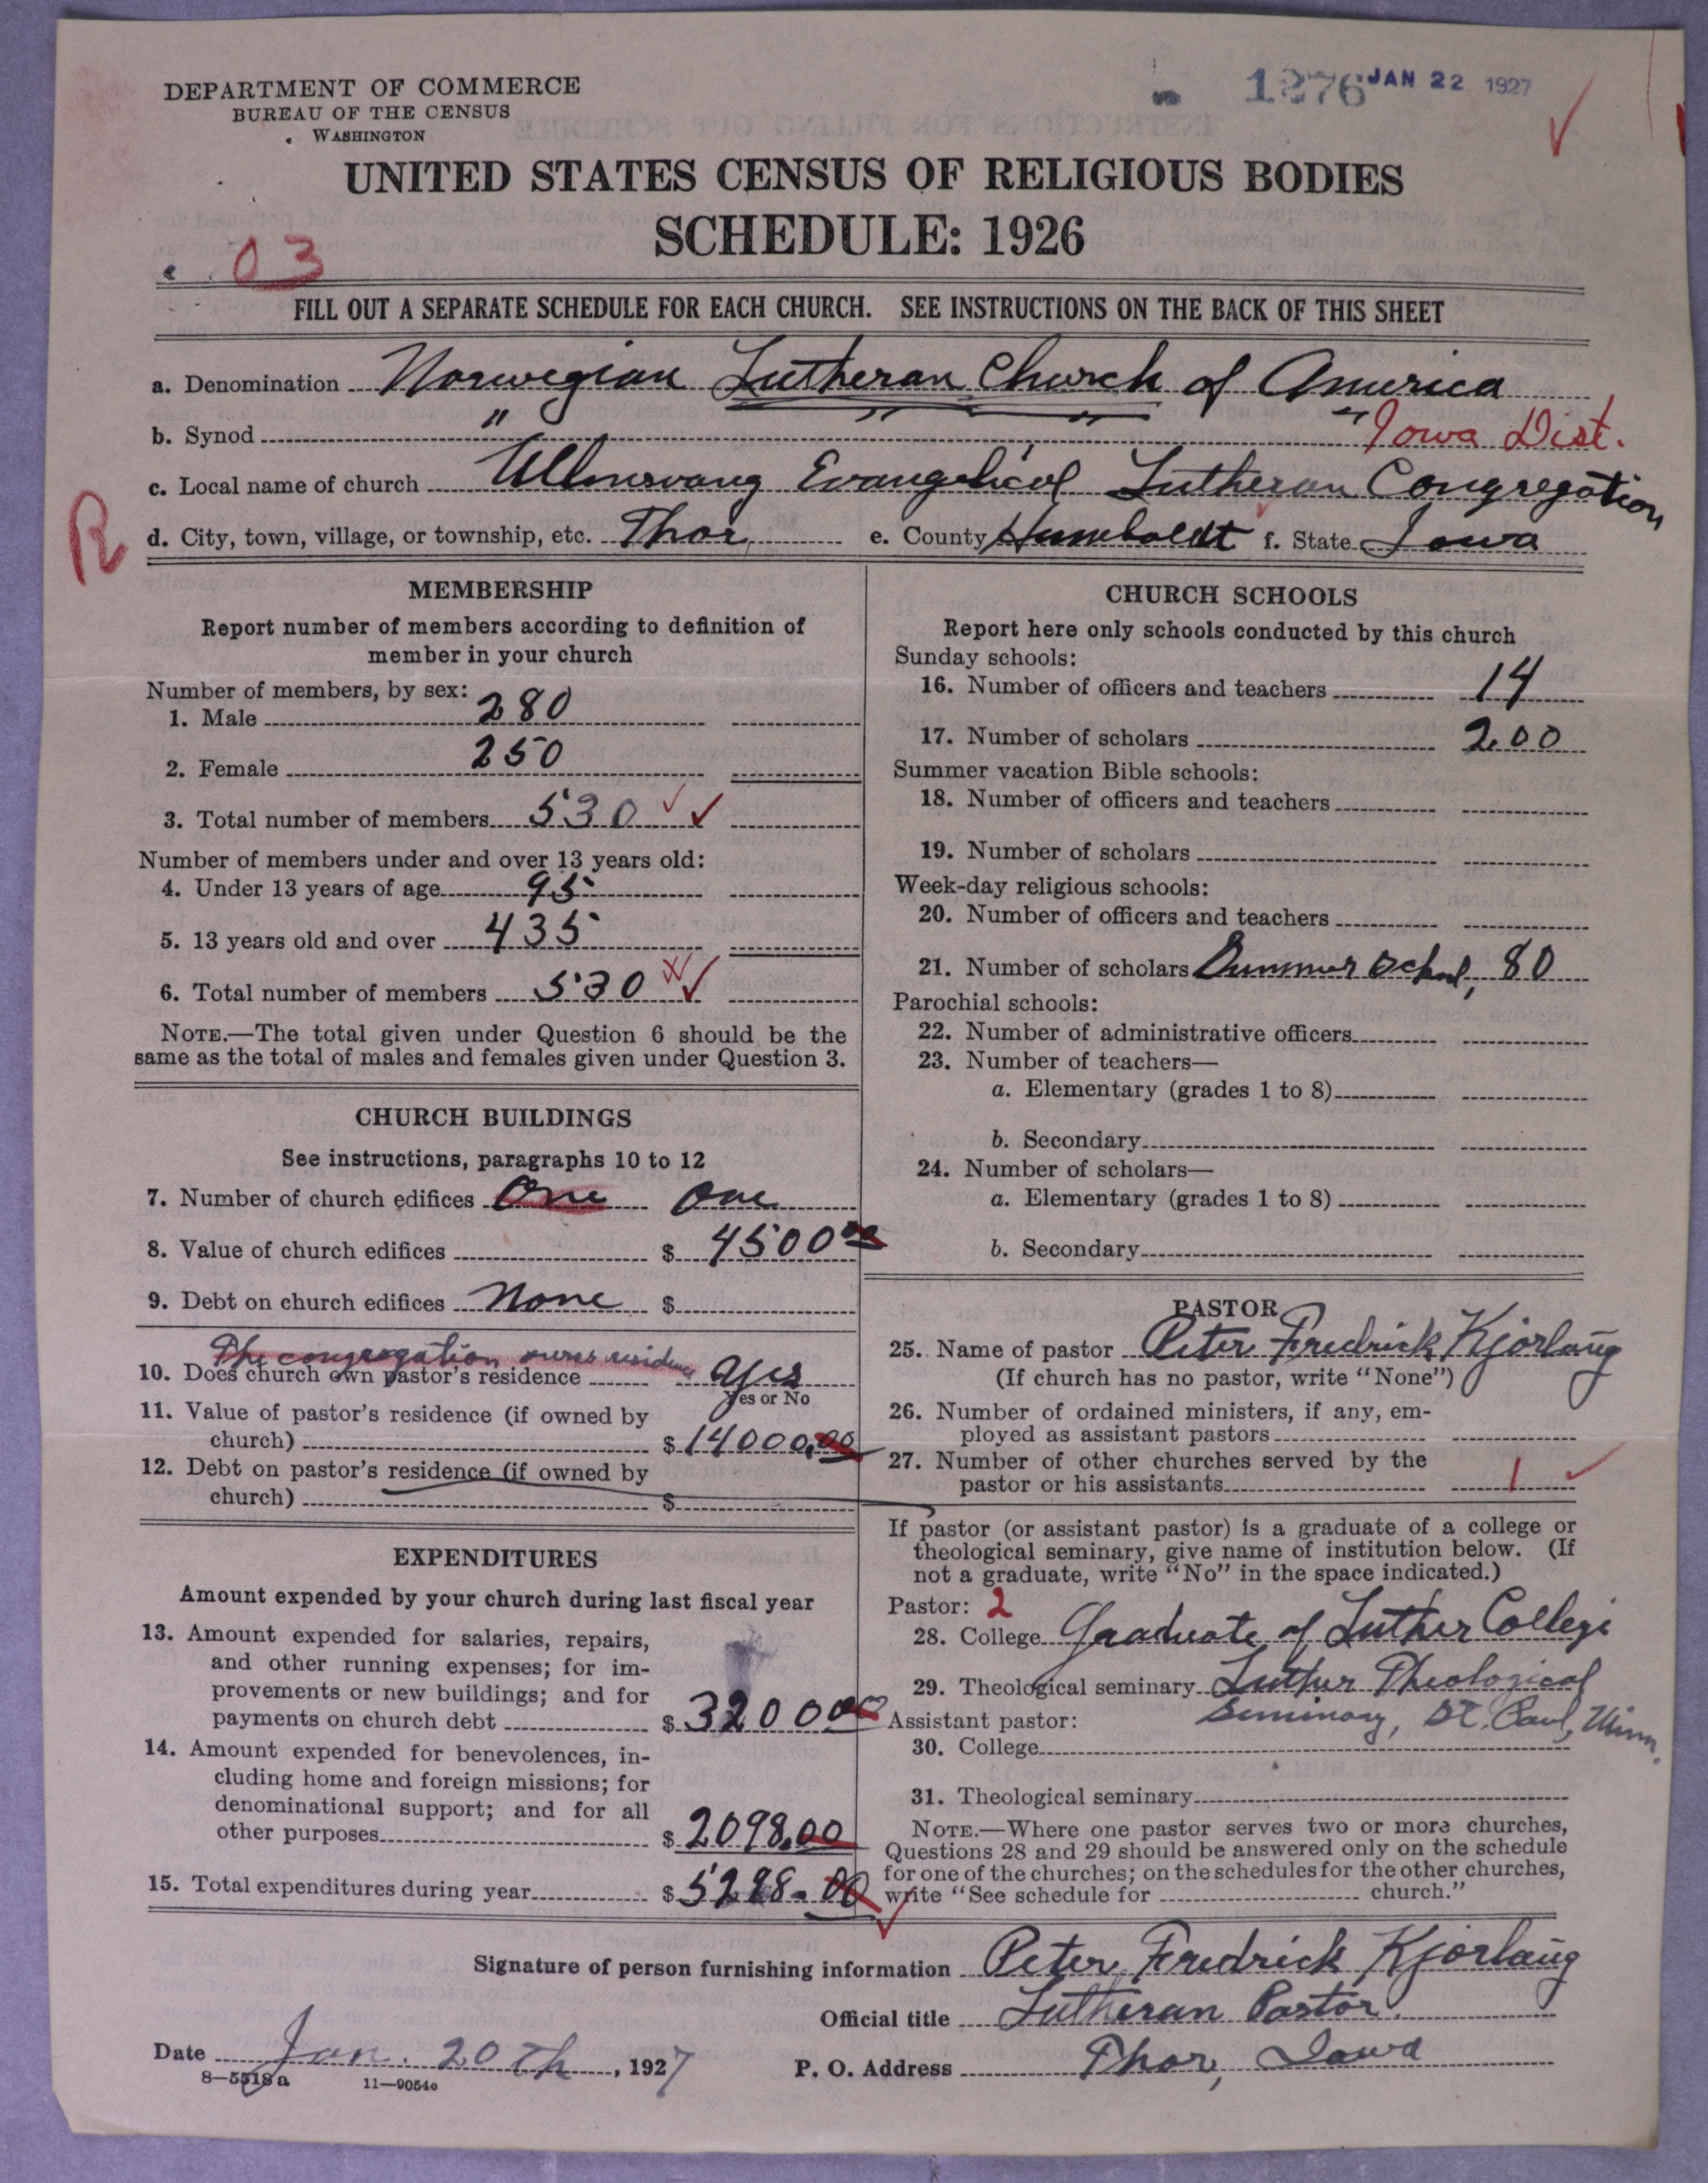 DEPARTMENT OF COMMERCE
BUREAU OF THE CENSUS
WASHINGTON
1276 JAN 22 1927
UNITED STATES CENSUS OF RELIGIOUS BODIES
SCHEDULE: 1926
03
FILL OUT A SEPARATE SCHEDULE FOR EACH CHURCH. SEE INSTRUCTIONS ON THE BACK OF THIS SHEET
a. Denomination Norwegian Lutheran Church of America
b. Synod " " " " Iowa Dist.
c. Local name of church Ullensvang Evangelical Lutheran Congregation
R
d. City, town, village, or township, etc. Thor, e. County Humboldt f. State Iowa
MEMBERSHIP
Report number of members according to definition of
member in your church
Number of members, by sex:
1. Male 280
2. Female 250
3. Total number of members 530
Number of members under and over 13 years old:
4. Under 13 years of age 95
5. 13 years old and over 435
6. Total number of members 530
NOTE.—The total given under Question 6 should be the
same as the total of males and females given under Question 3.
CHURCH BUILDINGS
See instructions, paragraphs 10 to 12
7. Number of church edifices One One
8. Value of church edifices $ 4500 00
9. Debt on church edifices None $
The congregation owns residence
10. Does church own pastor's residence Yes
Yes or No
11. Value of pastor's residence (if owned by
church) $ 14000.00
12. Debt on pastor's residence (if owned by
church) $
EXPENDITURES
Amount expended by your church during last fiscal year
13. Amount expended for salaries, repairs,
and other running expenses; for im-
provements or new buildings; and for
payments on church debt $ 3200 00
14. Amount expended for benevolences, in-
cluding home and foreign missions; for
denominational support; and for all
other purposes $ 2098.00
15. Total expenditures during year $ 5298.00
CHURCH SCHOOLS
Report here only schools conducted by this church
Sunday schools:
16. Number of officers and teachers 14
17. Number of scholars 200
Summer vacation Bible schools:
18. Number of officers and teachers
19. Number of scholars
Week-day religious schools:
20. Number of officers and teachers
21. Number of scholars Summer School, 80
Parochial schools:
22. Number of administrative officers
23. Number of teachers—
a. Elementary (grades 1 to 8)
b. Secondary
24. Number of scholars—
a. Elementary (grades 1 to 8)
b. Secondary
PASTOR
25. Name of pastor Peter Fredrick Kjorlaug
(If church has no pastor, write "None")
26. Number of ordained ministers, if any, em-
ployed as assistant pastors
27. Number of other churches served by the
pastor or his assistants 1
If pastor (or assistant pastor) is a graduate of a college or
theological seminary, give name of institution below. (If
not a graduate, write "No" in the space indicated.)
Pastor: 2
28. College Graduate of Luther College
29. Theological seminary Luther Theological
Seminary, St. Paul, Minn.
Assistant pastor:
30. College
31. Theological seminary
NOTE.—Where one pastor serves two or more churches,
Questions 28 and 29 should be answered only on the schedule
for one of the churches; on the schedules for the other churches,
write "See schedule for church."
Signature of person furnishing information Peter Fredrick Kjorlaug
Official title Lutheran Pastor.
Date Jan. 20th, 1927 P. O. Address Thor, Iowa
8—5518a 11—9054c